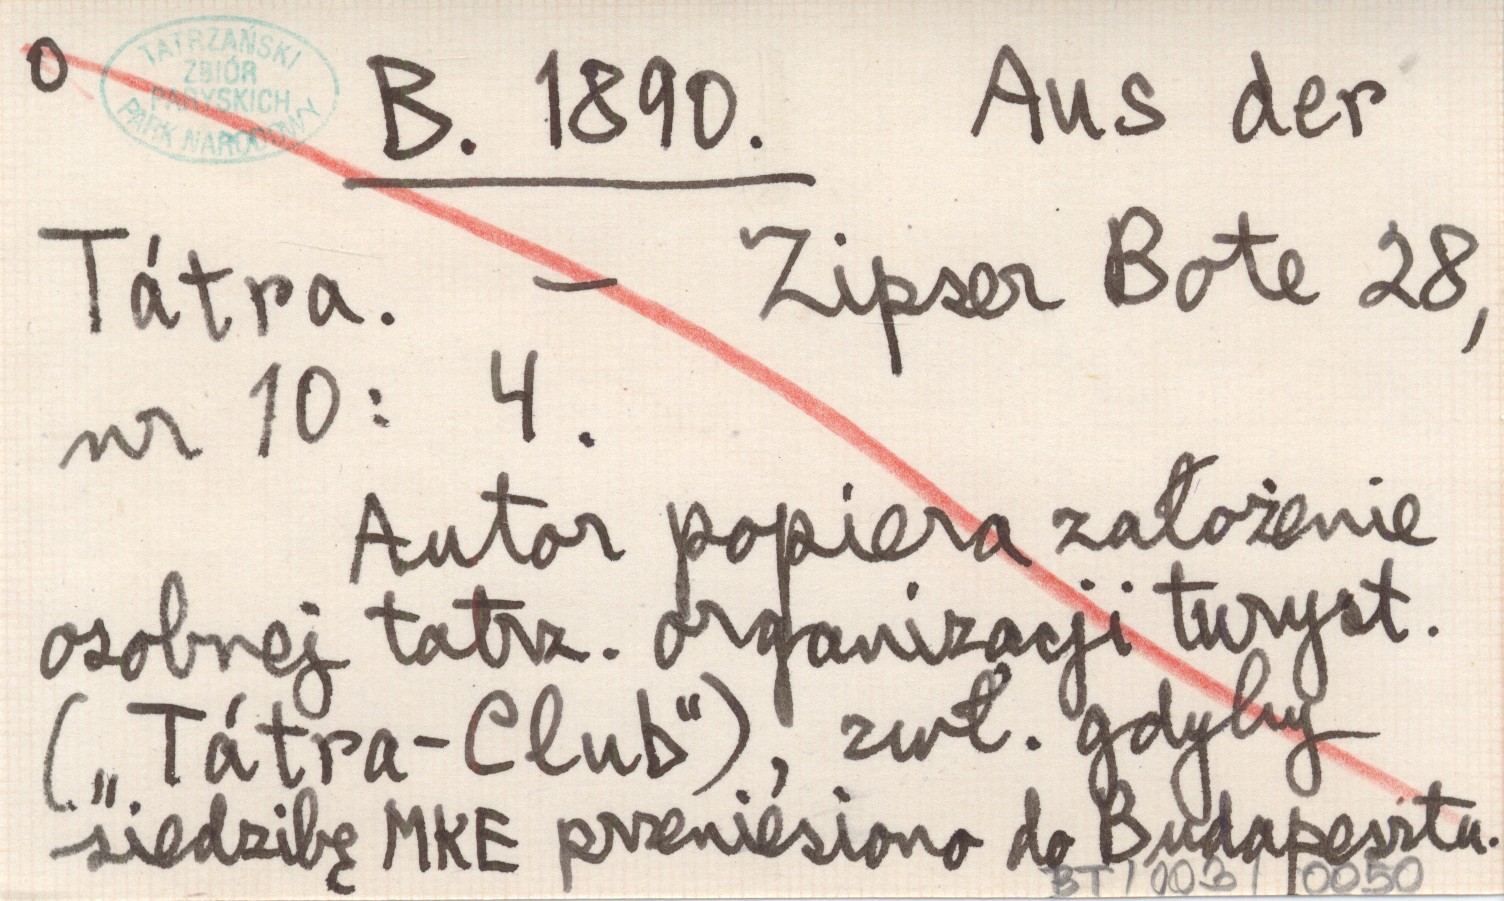 O
TATRZAŃSKI
ZBIÓR
PARYSKICH
PARK NARODOWY
B. 1890. Aus der
Tátra. — Zipser Bote 28,
nr 10: 4.
Autor popiera założenie
osobnej tatrz. organizacji turyst.
(„Tátra-Club"), zwł. gdyby
siedzibę MKE przeniesiono do Budapesztu.
BT / 003 / 0050